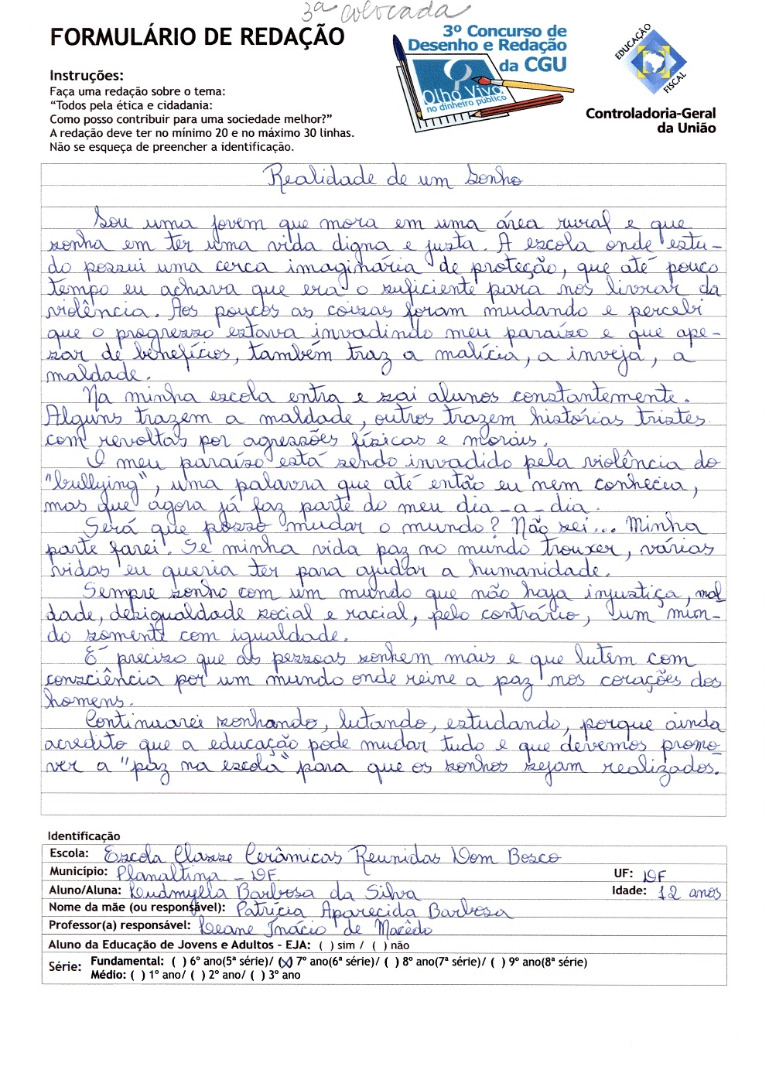 3ª colocada
FORMULÁRIO DE REDAÇÃO
3º Concurso de
Desenho e Redação
da CGU
Olho Vivo
no dinheiro público
EDUCAÇÃO
FISCAL
Controladoria-Geral
da União
Instruções:
Faça uma redação sobre o tema:
"Todos pela ética e cidadania:
Como posso contribuir para uma sociedade melhor?"
A redação deve ter no mínimo 20 e no máximo 30 linhas.
Não se esqueça de preencher a identificação.
Realidade de um Sonho
Sou uma jovem que mora em uma área rural e que
sonha em ter uma vida digna e justa. A escola onde estu-
do possui uma cerca imaginária de proteção, que até pouco
tempo eu achava que era o suficiente para nos livrar da
violência. Aos poucos as coisas foram mudando e percebi
que o progresso estava invadindo meu paraíso e que ape-
sar de benefícios, também traz a malícia, a inveja, a
maldade.
Na minha escola entra e sai alunos constantemente.
Alguns trazem a maldade, outros trazem histórias tristes
com revoltas por agressões físicas e morais.
O meu paraíso está sendo invadido pela violência do
"bullying", uma palavra que até então eu nem conhecia,
mas que agora já faz parte do meu dia-a-dia.
Será que posso mudar o mundo? Não sei... Minha
parte farei. Se minha vida paz no mundo trouxer, várias
vidas eu queria ter para ajudar a humanidade.
Sempre sonho com um mundo que não haja injustiça, mal
dade, desigualdade social e racial, pelo contrário, um mun-
do somente com igualdade.
É preciso que as pessoas sonhem mais e que lutem com
consciência por um mundo onde reine a paz nos corações dos
homens.
Continuarei sonhando, lutando, estudando, porque ainda
acredito que a educação pode mudar tudo e que devemos promo
ver a "paz na escola" para que os sonhos sejam realizados.
Identificação
Escola: Escola Classe Cerâmicas Reunidas Dom Bosco
Município: Planaltina - DF UF: DF
Aluno/Aluna: Ludmylla Barbosa da Silva Idade: 12 anos
Nome da mãe (ou responsável): Patrícia Aparecida Barbosa
Professor(a) responsável: Leane Inácio de Macêdo
Aluno da Educação de Jovens e Adultos - EJA: ( ) sim / ( ) não
Série: Fundamental: ( ) 6º ano(5ª série)/ (x) 7º ano(6ª série)/ ( ) 8º ano(7ª série)/ ( ) 9º ano(8ª série)
Médio: ( ) 1º ano/ ( ) 2º ano/ ( ) 3º ano